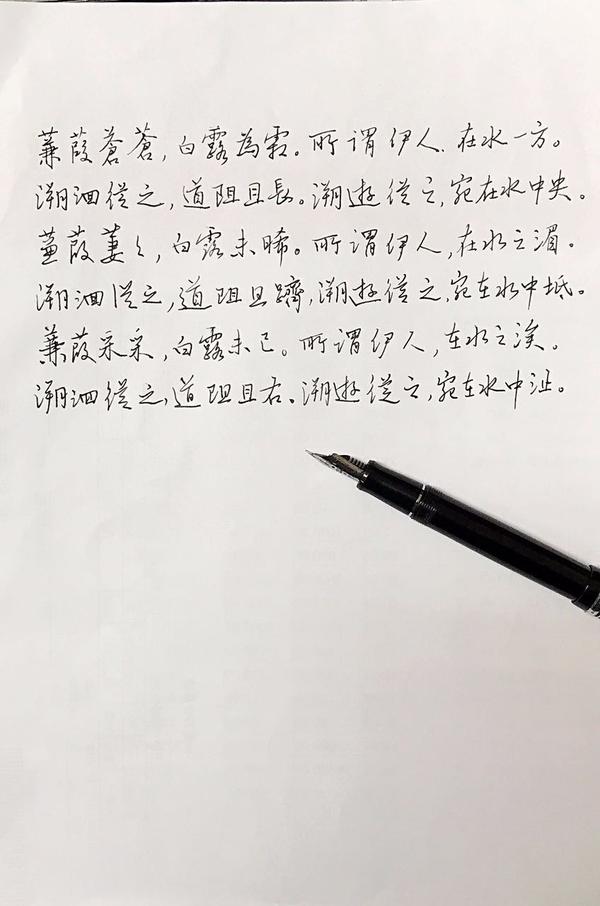 蒹葭蒼蒼，白露為霜。所謂伊人、在水一方。
溯洄從之，道阻且長。溯遊從之，宛在水中央。
蒹葭萋々，白露未晞。所謂伊人，在水之湄。
溯洄從之，道阻且躋，溯遊從之，宛在水中坻。
蒹葭采采，白露未已。所謂伊人，在水之涘。
溯洄從之，道阻且右。溯遊從之，宛在水中沚。